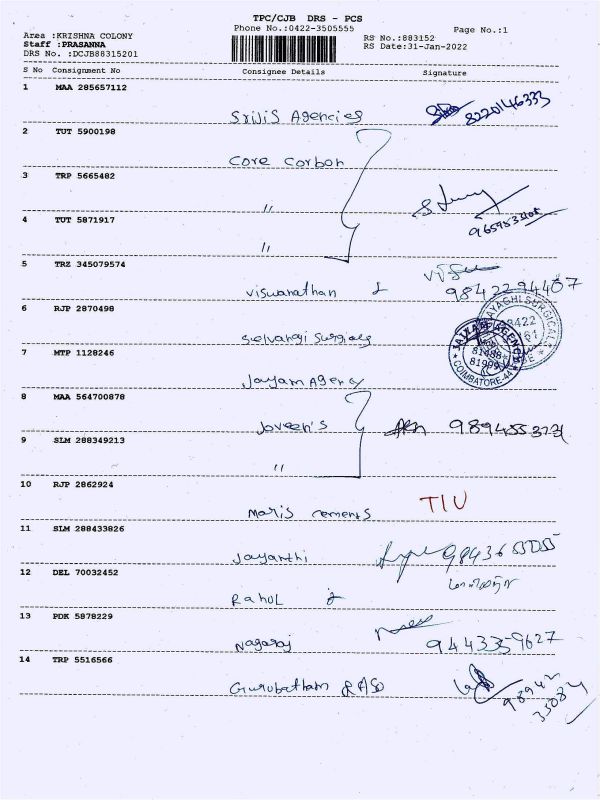 TPC/CJB DRS - PCS
Phone No.:0422-3505555
Page No.:1
Area :KRISHNA COLONY
Staff :PRASANNA
DRS No. :DCJB88315201
RS No.:883152
RS Date:31-Jan-2022
S No Consignment No Consignee Details Signature
1 MAA 285657112
Srijis Agencies 8220146333
2 TUT 5900198
Core Corbon
3 TRP 5665482
"
4 TUT 5871917
"
5 TRZ 345079574
Viswanathan 9842294407
6 RJP 2870498
Selvangi Surgicals
7 MTP 1128246
Jayam Agency
JAYAM AGENCY
COIMBATORE
8 MAA 564700878
Joveen's
9 SLM 288349213
"
10 RJP 2862924
Maris cements TIU
11 SLM 288433826
Jayanthi
12 DEL 70032452
Rahul
13 PDK 5878229
Nagaraj 944335-9627
14 TRP 5516566
Gurubatham RASO